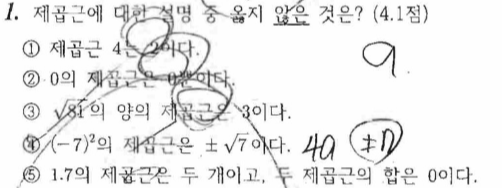 1. 제곱근에 대한 설명 중 옳지 않은 것은? (4.1점)
① 제곱근 4는 2이다.
② 0의 제곱근은 0뿐이다.
③ √81의 양의 제곱근은 3이다.
④ (-7)²의 제곱근은 ±√7이다.
⑤ 1.7의 제곱근은 두 개이고, 두 제곱근의 합은 0이다.